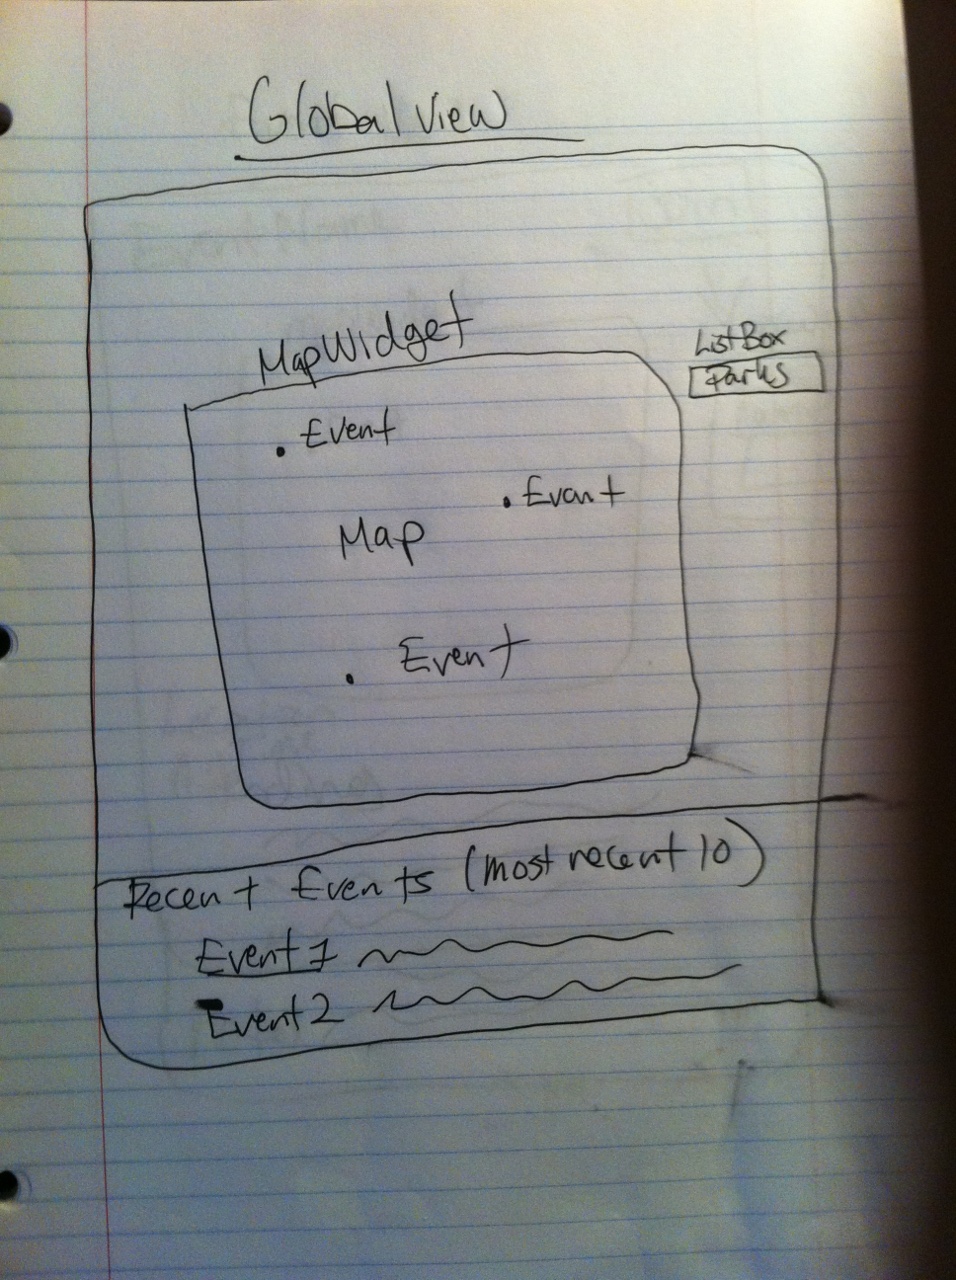 Global view
MapWidget
ListBox
Parks
Event
Event
Map
Event
Recent Events (most recent 10)
Event 1
Event 2